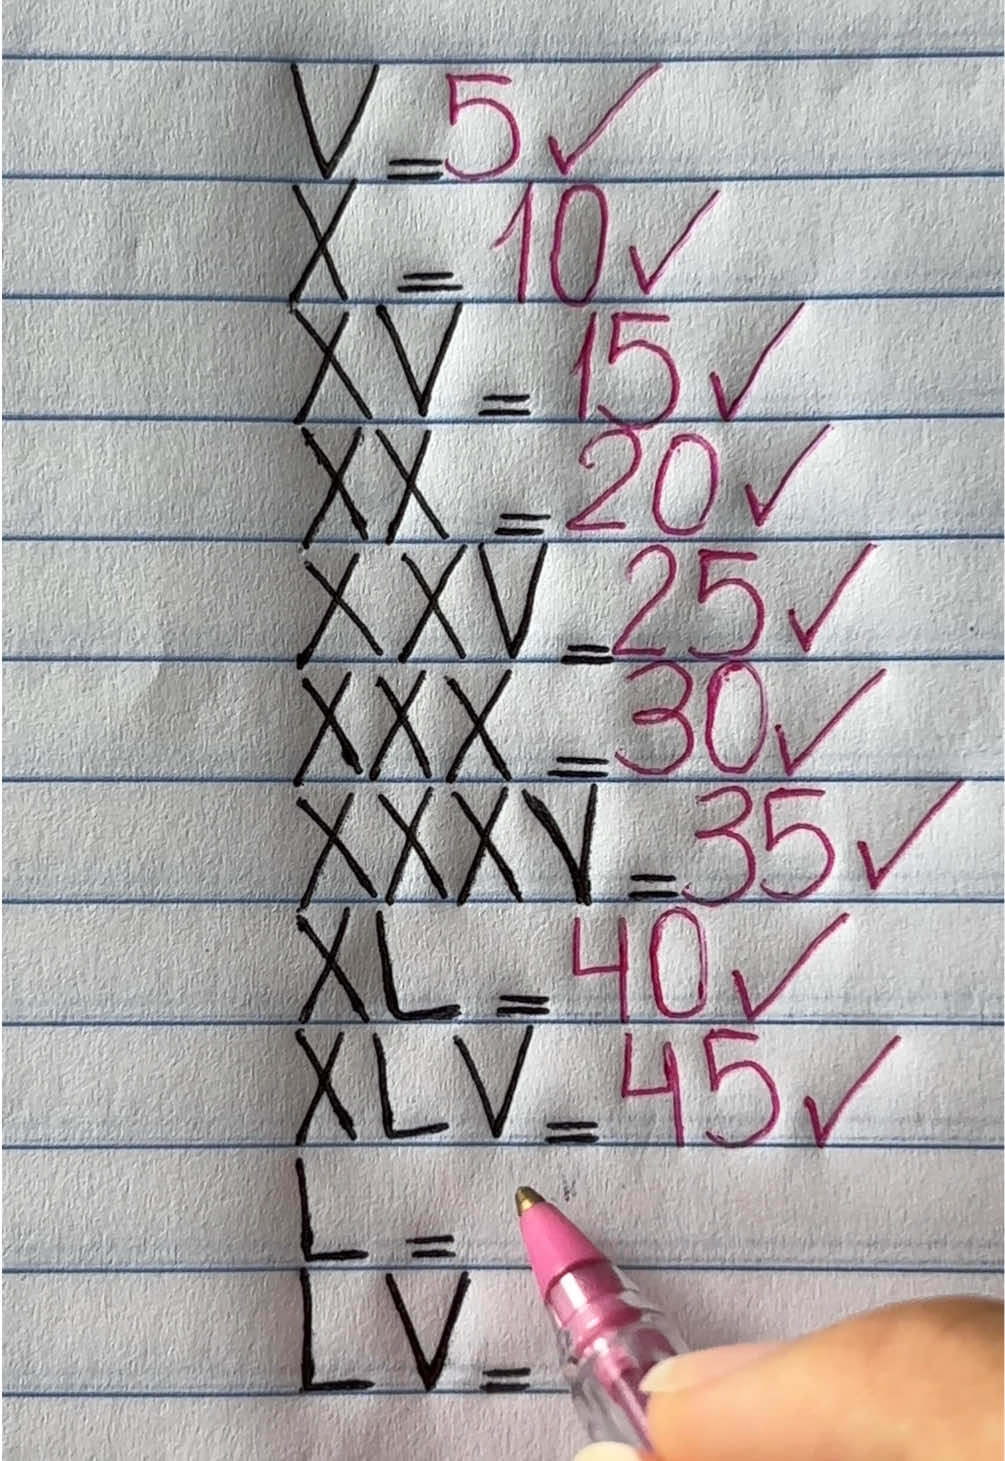 V = 5 ✓
X = 10 ✓
XV = 15 ✓
XX = 20 ✓
XXV = 25 ✓
XXX = 30 ✓
XXXV = 35 ✓
XL = 40 ✓
XLV = 45 ✓
L =
LV =